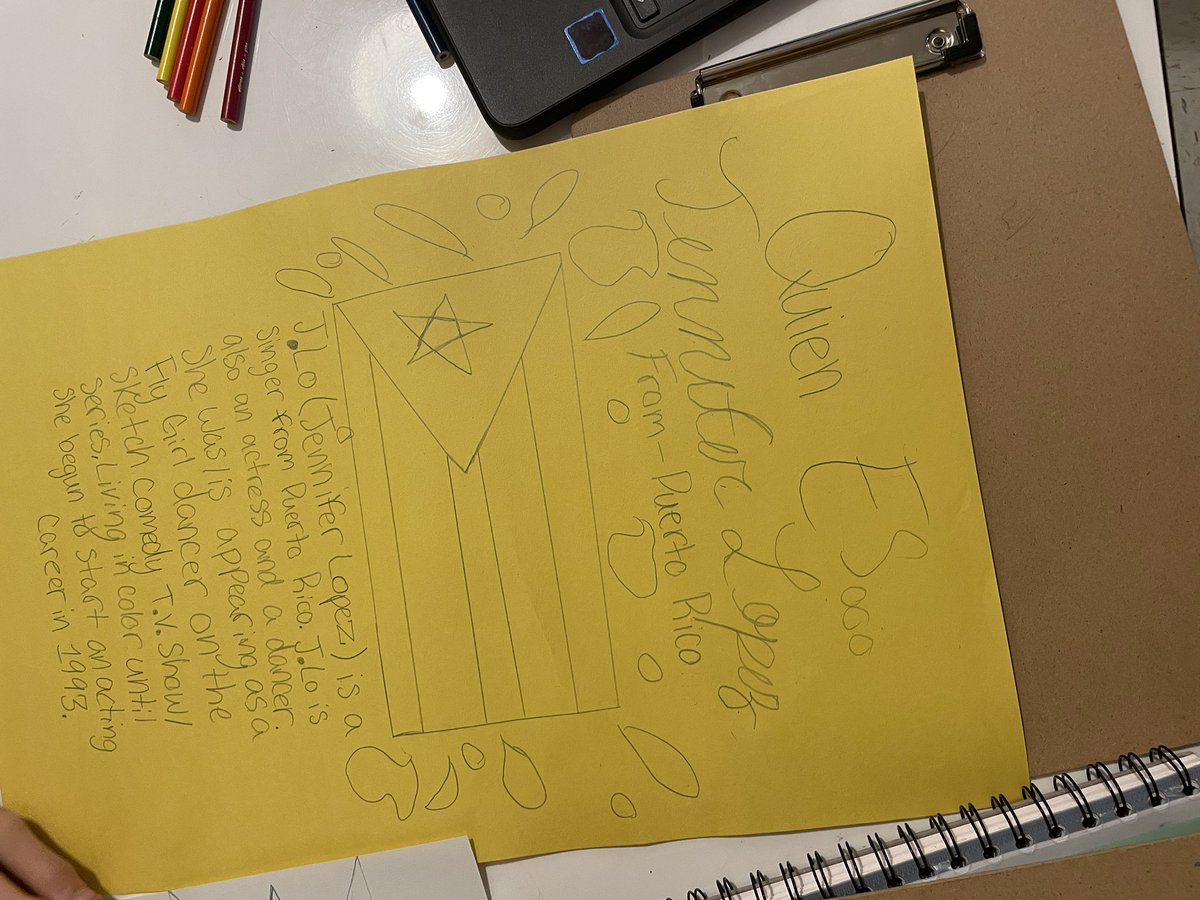 Quien ES
Jennifer Lopez
From-Puerto Rico
J.Lo (Jennifer Lopez) is a
singer from Puerto Rico. J.Lo is
also an actress and a dancer.
She was/is appearing as a
Fly Girl dancer on the
sketch comedy T.V. Show/
series, Living in color until
she begun to start an acting
Career in 1993.